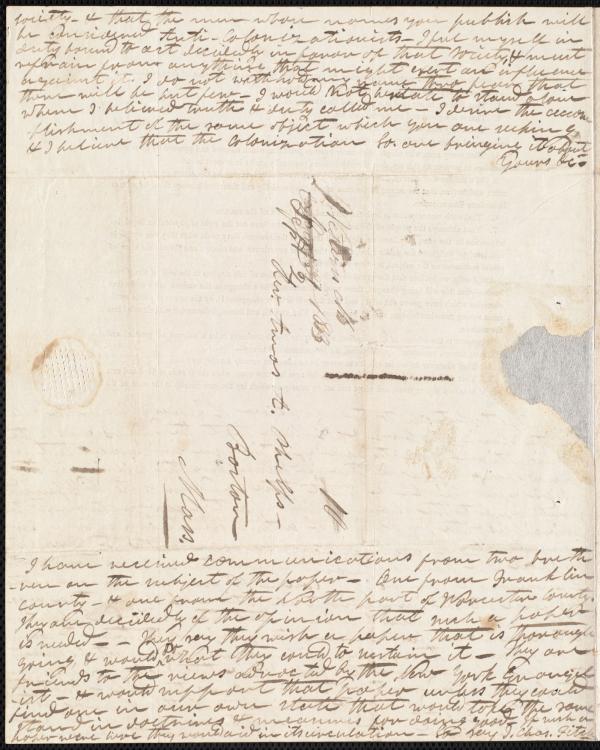 society - & that the men whose names you publish will
be considered Anti-Colonizationists - I feel myself in
duty bound to act decidedly in favor of that Society & must
refrain from anything that might exert an influence
against it. I do not withhold my name thro' fear that
there will be but few - I would not hesitate to stand alone
where I believed truth & duty called me. I desire the accom
plishment of the same object which you are seeking
& I believe that the Colonization So. are bringing it about
Yours &c -
Sept 9, 1833
Rev. Amos A. Phelps -
Boston
Mass.
I have received communications from two breth
-ren on the subject of the paper - One from Franklin
County - & one from the North part of Worcester County.
They are decidedly of the opinion that such a paper
is needed - - They say they wish a paper that is thorough
going & would do what they could to sustain it - They are
friends to the views advocated by the New York Evangel
ist - & would support that paper unless they could
find one in our own state that would take the same
stand in doctrines & measures for doing good - If such a
paper were are they would aid in its circulation - So say J. Chas. Fitch